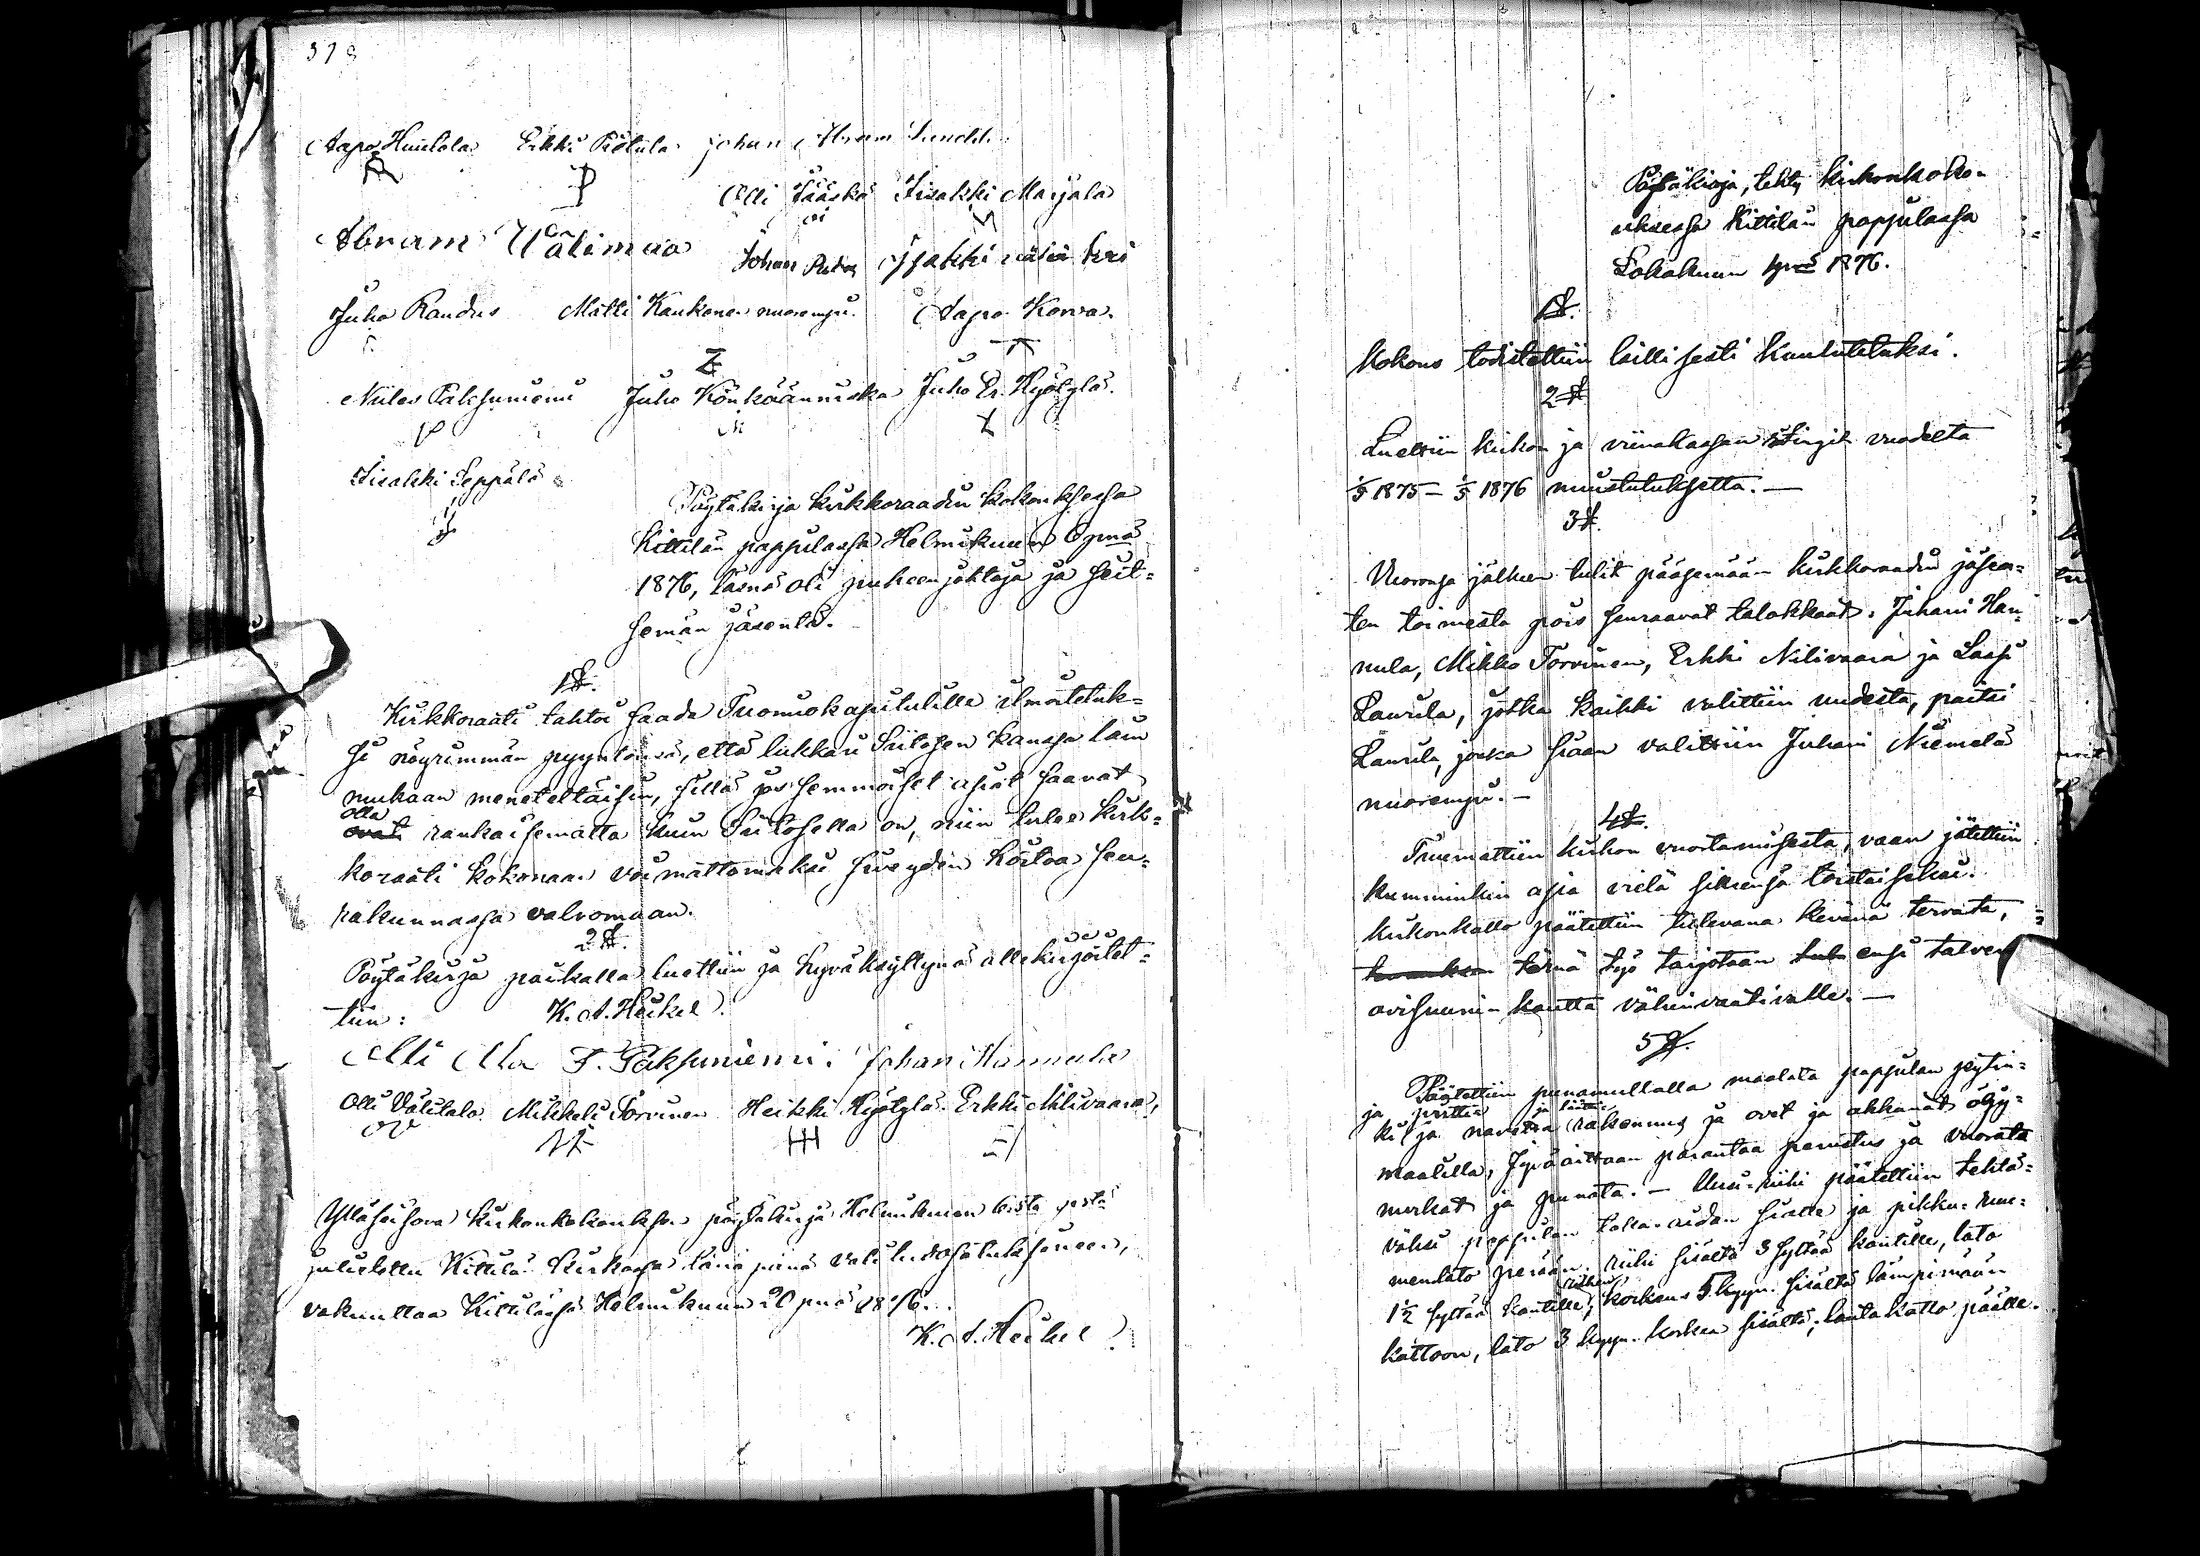 378
Aapo Huilula Erkki Piölula Johan Abram Sundl.
Olli Jääskö Iisakki Marjala
Abram Wälimaa Johan Isakki
Juho Randus Matti Kaukonen nuorempi. Aapo Korva.
Z
Niiles Paksuniemi Juho Könkäänniska Juho Er. Hyötylä.
Iisakki Seppälä
Pöytäkirja kirkkoraadin kokouksessa
Kittilän pappilassa Helmikuun 6 pnä
1876, läsnä oli puheenjohtaja ja seit-
semän jäsentä.
1 §.
Kirkkoraati tahtoi saada Tuomiokapitulille ilmoitetuk-
si nöyrimmän pyyntönsä, että lukkari Siitosen kanssa lain
mukaan meneteltäisiin, sillä jos semmoiset asiat saavat
olla
ovat rankaisematta kuin Siitosella on, niin tulee kirk-
koraati kokonaan voimattomaksi siveyden hoitoa seu-
rakunnassa valvomaan.
2 §.
Pöytäkirja paikalla luettiin ja hyväksyttynä allekirjoitet-
tiin: K. A. Heikel.
Olli Ala F. Paksuniemi. Johan Hannula
Olli Välitalo Mikkeli Torvinen Heikki Hyötylä. Erkki Nilivaara,
OV HH
Ylläseisova kirkonkokouksen pöytäkirja Helmikuun 6:sta p:stä
julistettu Kittilän kirkossa tänä päivänä valitusosoituksineen,
vakuuttaa Kittilässä Helmikuun 20 pnä 1876.
K. A. Heikel.
Pöytäkirja, tehty kirkonkoko-
uksessa Kittilän pappilassa
Lokakuun 1 pnä 1876.
1 §.
Kokous todistettiin laillisesti kuulutetuksi.
2 §
Luettiin kirkon ja viinakassan tilingit vuodelta
1/5 1875 – 1/5 1876 muistutuksetta. —
3 §.
Vuoronsa jälkeen tulit pääsemään kirkkoraadin jäsen-
ten toimesta pois seuraavat talokkaat: Juhani Han-
nula, Mikko Torvinen, Erkki Nilivaara ja Lassi
Laurila, jotka kaikki valittiin uudesta, paitsi
Laurila, jonka siaan valittiin Juhani Niemelä
nuorempi. —
4 §.
Tuumattiin kirkon vuoraamisesta, vaan jätettiin
kumminkin asia vielä siksensä toistaiseksi.
Kirkonkatto päätettiin tulevana kevänä tervata,
tämä työ tarjotaan ensi talven
avisuunin kautta vähinvaativalle. —
5 §.
Päätettiin punamullalla maalata pappilan pytin-
ja pirtti ja
ki ja navetta rakennus ja ovet ja akkunat öljy-
maalilla, Jyväaittaan parantaa perustus ja vuorata
nurkat ja punata. — Uusi riihi päätettiin tehtä-
väksi pappilan taka-aidan sialle ja pikku- ruu-
menlato perään. riihi sisältä 3 syltää kantille, lato
riihen
1½ syltää kantille, korkeus 5 kyyn. sisältä lämpimään
kattoon, lato 3 kyyn. korkea sisältä, lautakatto päälle.